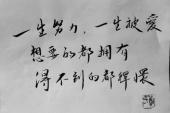 一生努力，一生被爱
想要的都拥有
得不到的都释怀